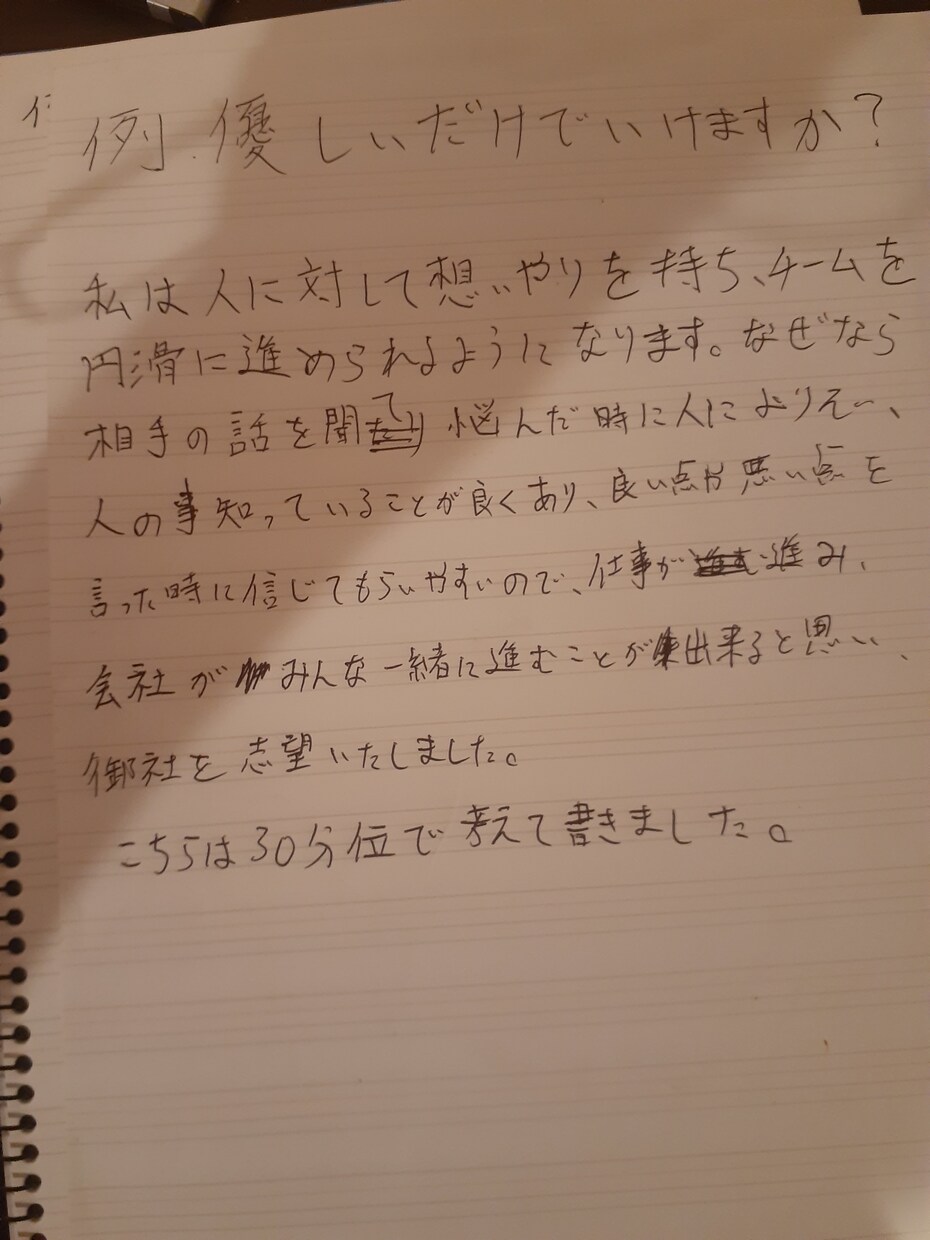 例. 優しいだけでいけますか?
私は人に対して想いやりを持ち、チームを
円滑に進められるようになります。なぜなら
相手の話を聞て 悩んだ時に人によりそい、
人の事知っていることが良くあり、良い点や悪い点を
言った時に信じてもらいやすいので、仕事が進み、
会社がみんな一緒に進むことが出来ると思い、
御社を志望いたしました。
こちらは30分位で考えて書きました。